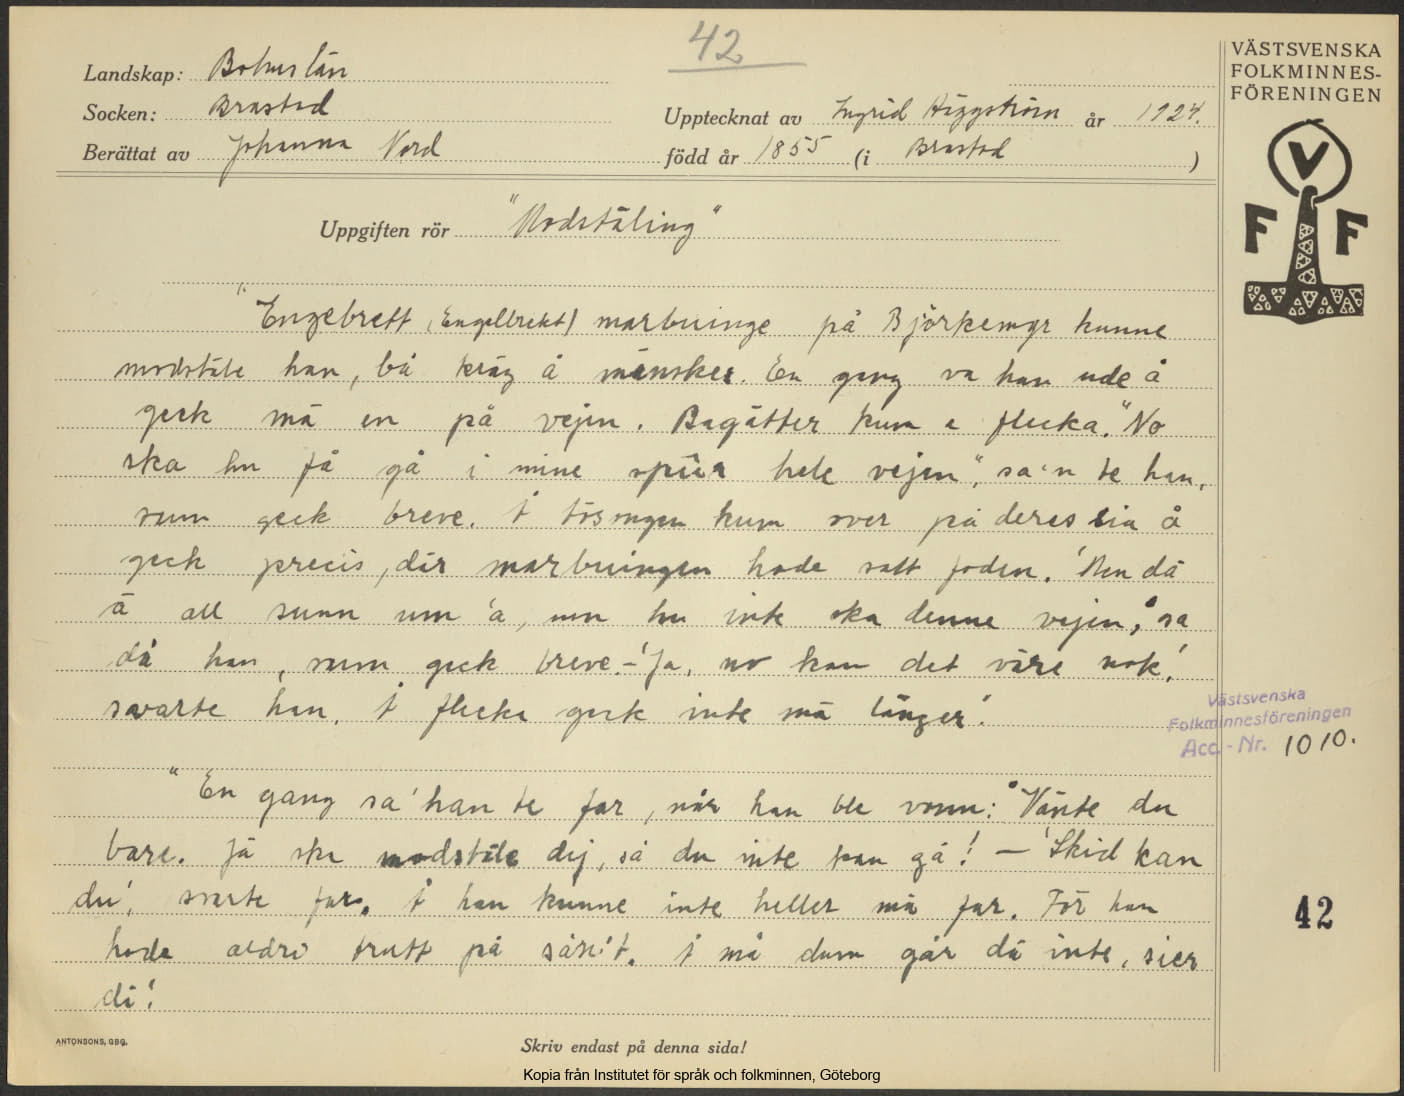 42
Landskap: Bohuslän
Socken: Brastad
Berättat av Johanna Nord
Upptecknat av Ingrid Häggström år 1924.
född år 1855 (i Brastad )
Uppgiften rör "Modstäling"
VÄSTSVENSKA
FOLKMINNES-
FÖRENINGEN
V
F F
"Engebrett (Engelbrekt) marbuinge på Björkemyr kunne
modstäle han, bå kräg å mänsker. En gang va han ude å
geck mä en på vejen. Bagätter kum a flecka. "No
ska hu få gå i mine spür hele vejen", sa'n te han,
sum geck breve. Å tösongen kum over på deres sia å
geck precis, där marbuingen hade satt foden. 'Men dä
ä all sunn um 'a, um hu inte ska denne vejen, sa
då han, sum geck breve. – 'Ja, no kan det väre nok',
svarte han. Å flecka geck inte mä länger'.
"En gang sa' han te far, når han ble vonn: "Vänte du
bare. Jä ska modstäle dij, så du inte kan gå! – 'Skid kan
du', svarte far. Å han kunne inte heller mä far. För han
hade aldri trutt på sånt. Å må dum går dä inte, sier
di'.
Västsvenska
Folkminnesföreningen
Acc.-Nr. 1010.
42
ANTONSONS, GBG.
Skriv endast på denna sida!
Kopia från Institutet för språk och folkminnen, Göteborg